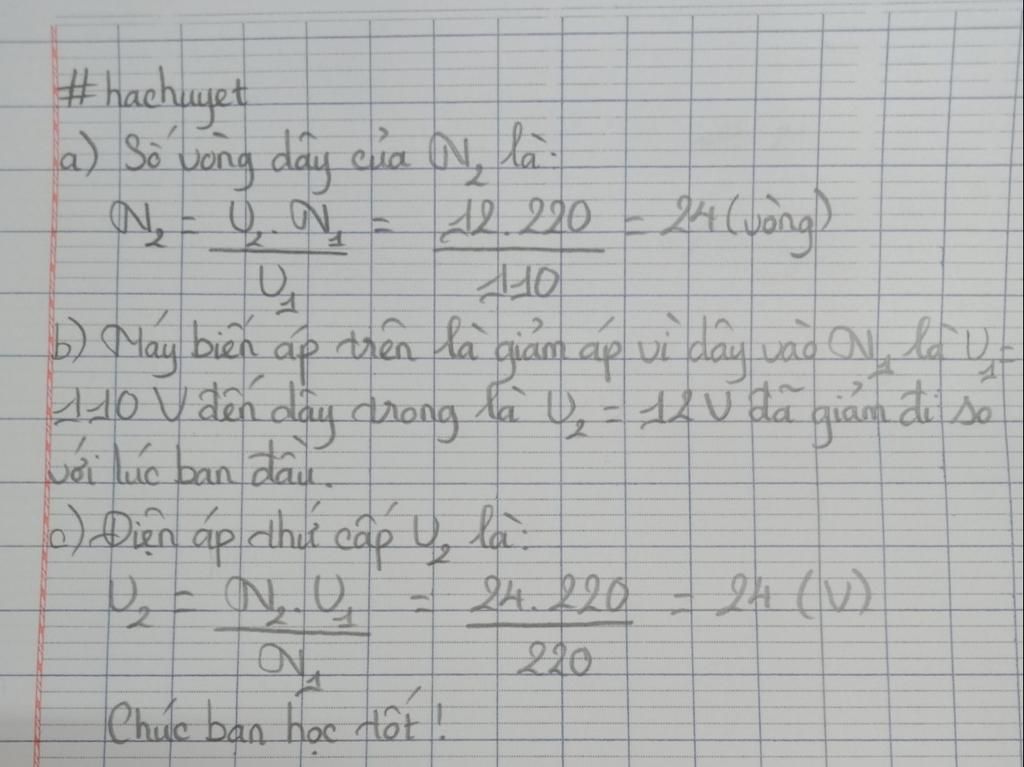 #hachuyet
a) Số vòng dây của N₂ là:
N₂ = U₂.N₁ / U₁ = 12.220 / 110 = 24 (vòng)
b) Máy biến áp trên là giảm áp vì dây vào N₁ là U₁ =
110V đến dây trong là U₂ = 12V đã giảm đi so
với lúc ban đầu.
c) Điện áp thứ cấp U₂ là:
U₂ = N₂.U₁ / N₁ = 24.220 / 220 = 24 (V)
Chúc bạn học tốt!